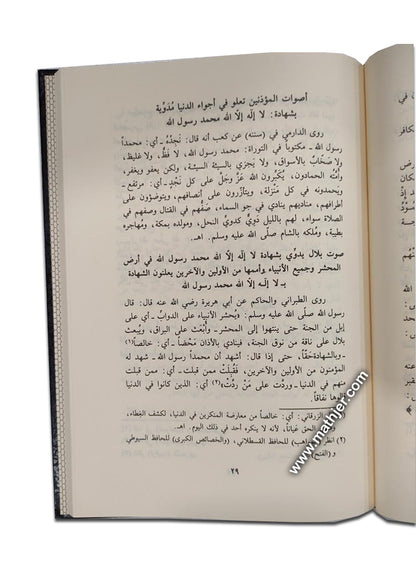 أصوات المؤذنين تعلو في أجواء الدنيا مُدَوِّية
بشهادة: لا إلٰه إلّا الله محمد رسول الله
روى الدارمي في (سننه) عن كعب أنه قال: نَجِدُهُ ـ أي: محمداً
رسول الله ـ مكتوباً في التوراة: محمد رسول الله، لا فظٌ، ولا غليظ،
ولا صَخَّاب بالأسواق، ولا يَجزي بالسيئة السيئة، ولكن يعفو ويغفر،
وأُمَّته الحمادون، يُكَبِّرون الله عزَّ وجلَّ على كل نَجْدٍ ـ أي: مرتفع ـ
ويَحمدونه في كل مَنزلة، ويتأزَّرون على أنصافهم، ويتوضؤون على
أطرافهم، مناديهم ينادي في جو السماء، صَفُّهم في القتال وصفهم في
الصلاة سواء، لهم بالليل دَوِيٌّ كدويِّ النحل، ومولده بمكة، ومُهاجره
بطيبة، ومُلكه بالشام صلّى الله عليه وسلم. اهـ.
صوت بلال يدوِّي بشهادة لا إلٰه إلّا الله محمد رسول الله في أرض
المحشر وجميع الأنبياء وأممها من الأولين والآخرين يعلنون الشهادة
بـ لا إلٰه إلّا الله محمد رسول الله
روى الطبراني والحاكم عن أبي هريرة رضي الله عنه قال: قال
رسول الله صلّى الله عليه وسلم: «يُحشر الأنبياء على الدوابِّ ـ أي:
إبل من الجنة حتى ينتهوا إلى المحشر ـ وأُبْعَث على البراق، ويُبعث
بلال على ناقة من نوق الجنة، فينادي بالأذان مَحْضاً ـ أي: خالصاً(١)
ـ وبالشهادة حقاً، حتى إذا قال: أشهد أن محمداً رسول الله ـ شهد له
المؤمنون من الأولين والآخرين، فقُبلتْ ممن قبلت ـ أي: ممن قبلت
منهم في الدنيا ـ وردَّت على مَنْ ردَّت»(٢) أي: الذين كانوا في الدنيا
نفاقاً.
الزرقاني: أي: خالصاً من معارضة المنكرين في الدنيا، لكشف الغطاء،
الحق عياناً، لأنه لا ينكره أحد في ذلك اليوم. اهـ.
(٢) انظر للحافظ القسطلاني، و(الخصائص الكبرى) للحافظ السيوطي
و(الفتح)
٢٩
www.mathjer.com